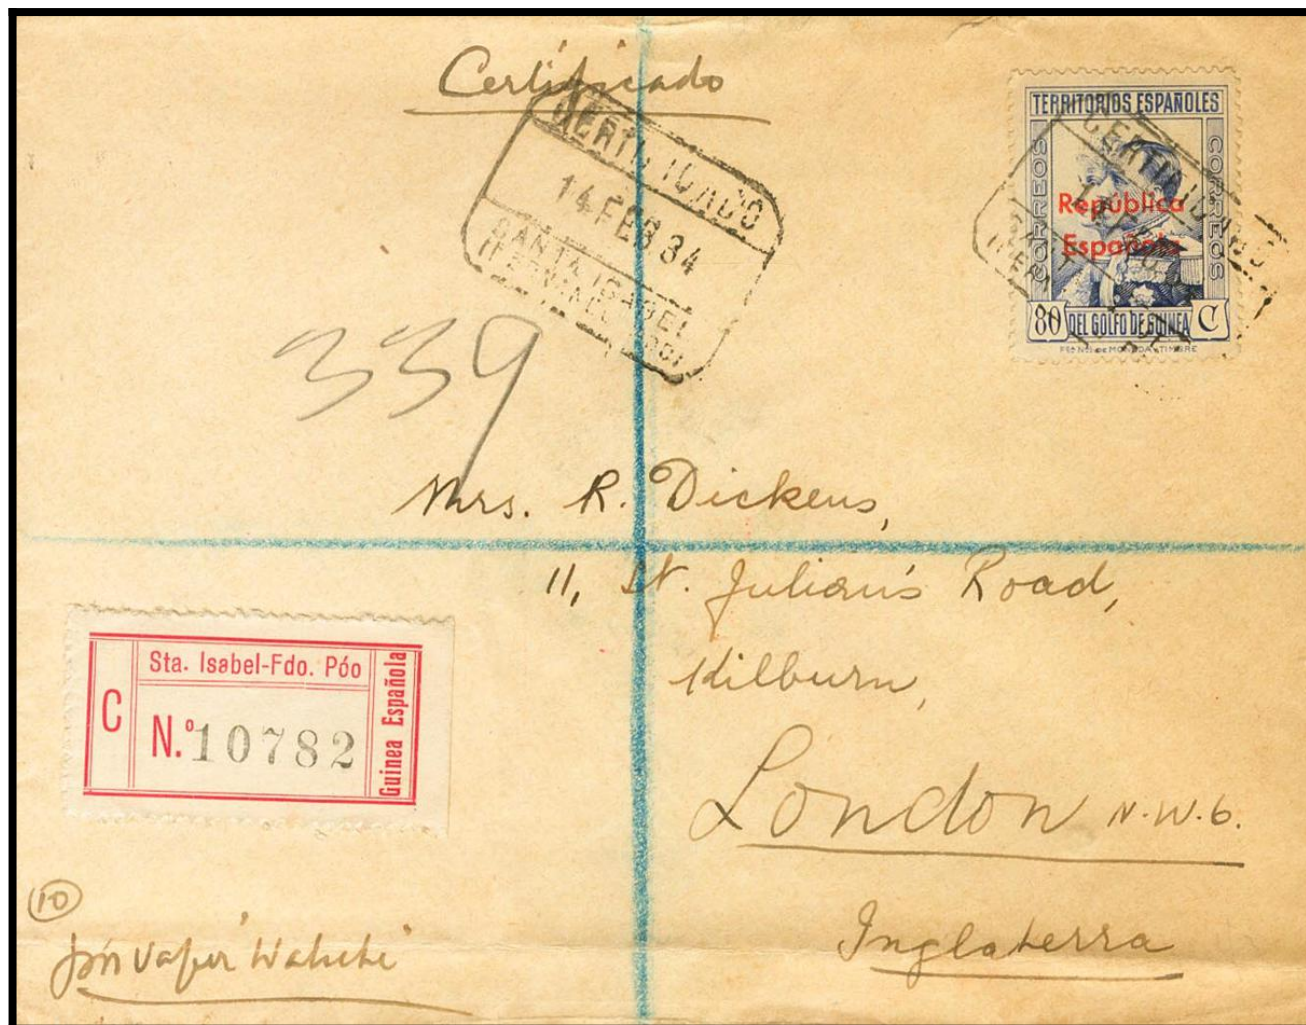 Certificado
CERTIFICADO
14 FEB 34
SANTA ISABEL
(FERNANDO POO)
TERRITORIOS ESPAÑOLES
CORREOS
CORREOS
República
Española
80 DEL GOLFO DE GUINEA C
CERTIFICADO
339
Mrs. R. Dickens,
11, St. Julian's Road,
Kilburn,
London N.W.6.
Inglaterra
Sta. Isabel-Fdo. Póo
C
N.º 10782
Guinea Española
10
por vapor "Wahehe"